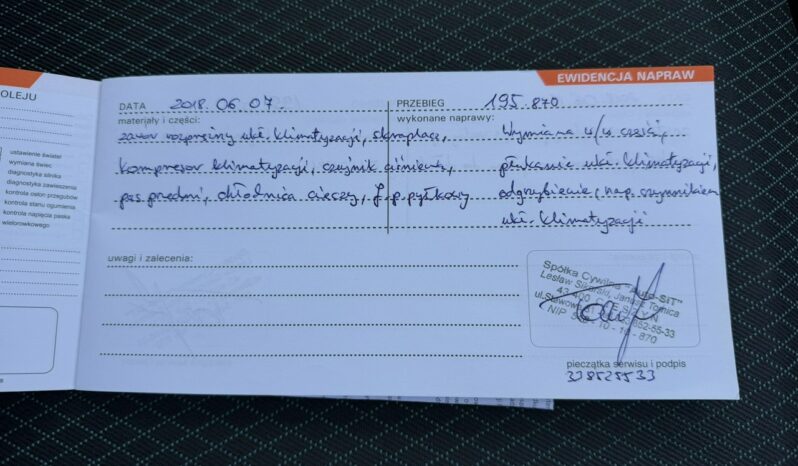 OLEJU
ustawienie świateł
wymiana świec
diagnostyka silnika
diagnostyka zawieszenia
kontrola osłon przegubów
kontrola stanu ogumienia
kontrola napięcia paska
wielorowkowego
EWIDENCJA NAPRAW
DATA 2018.06.07.
PRZEBIEG 195.870
materiały i części:
zawór rozprężny ukł. klimatyzacji, skraplacz,
kompresor klimatyzacji, czujnik ciśnienia,
pas przedni, chłodnica cieczy, f.p.pyłkowy
wykonane naprawy:
Wymiana w/w części,
płukanie ukł. klimatyzacji,
odgrzybienie, nap. czynnikiem
ukł. klimatyzacji
uwagi i zalecenia:
Spółka Cywilna "Auto-SIT"
Lesław Sikorski, Janusz Tomica
43-400
852-55-33
NIP
10 - 10 - 870
pieczątka serwisu i podpis
338525533